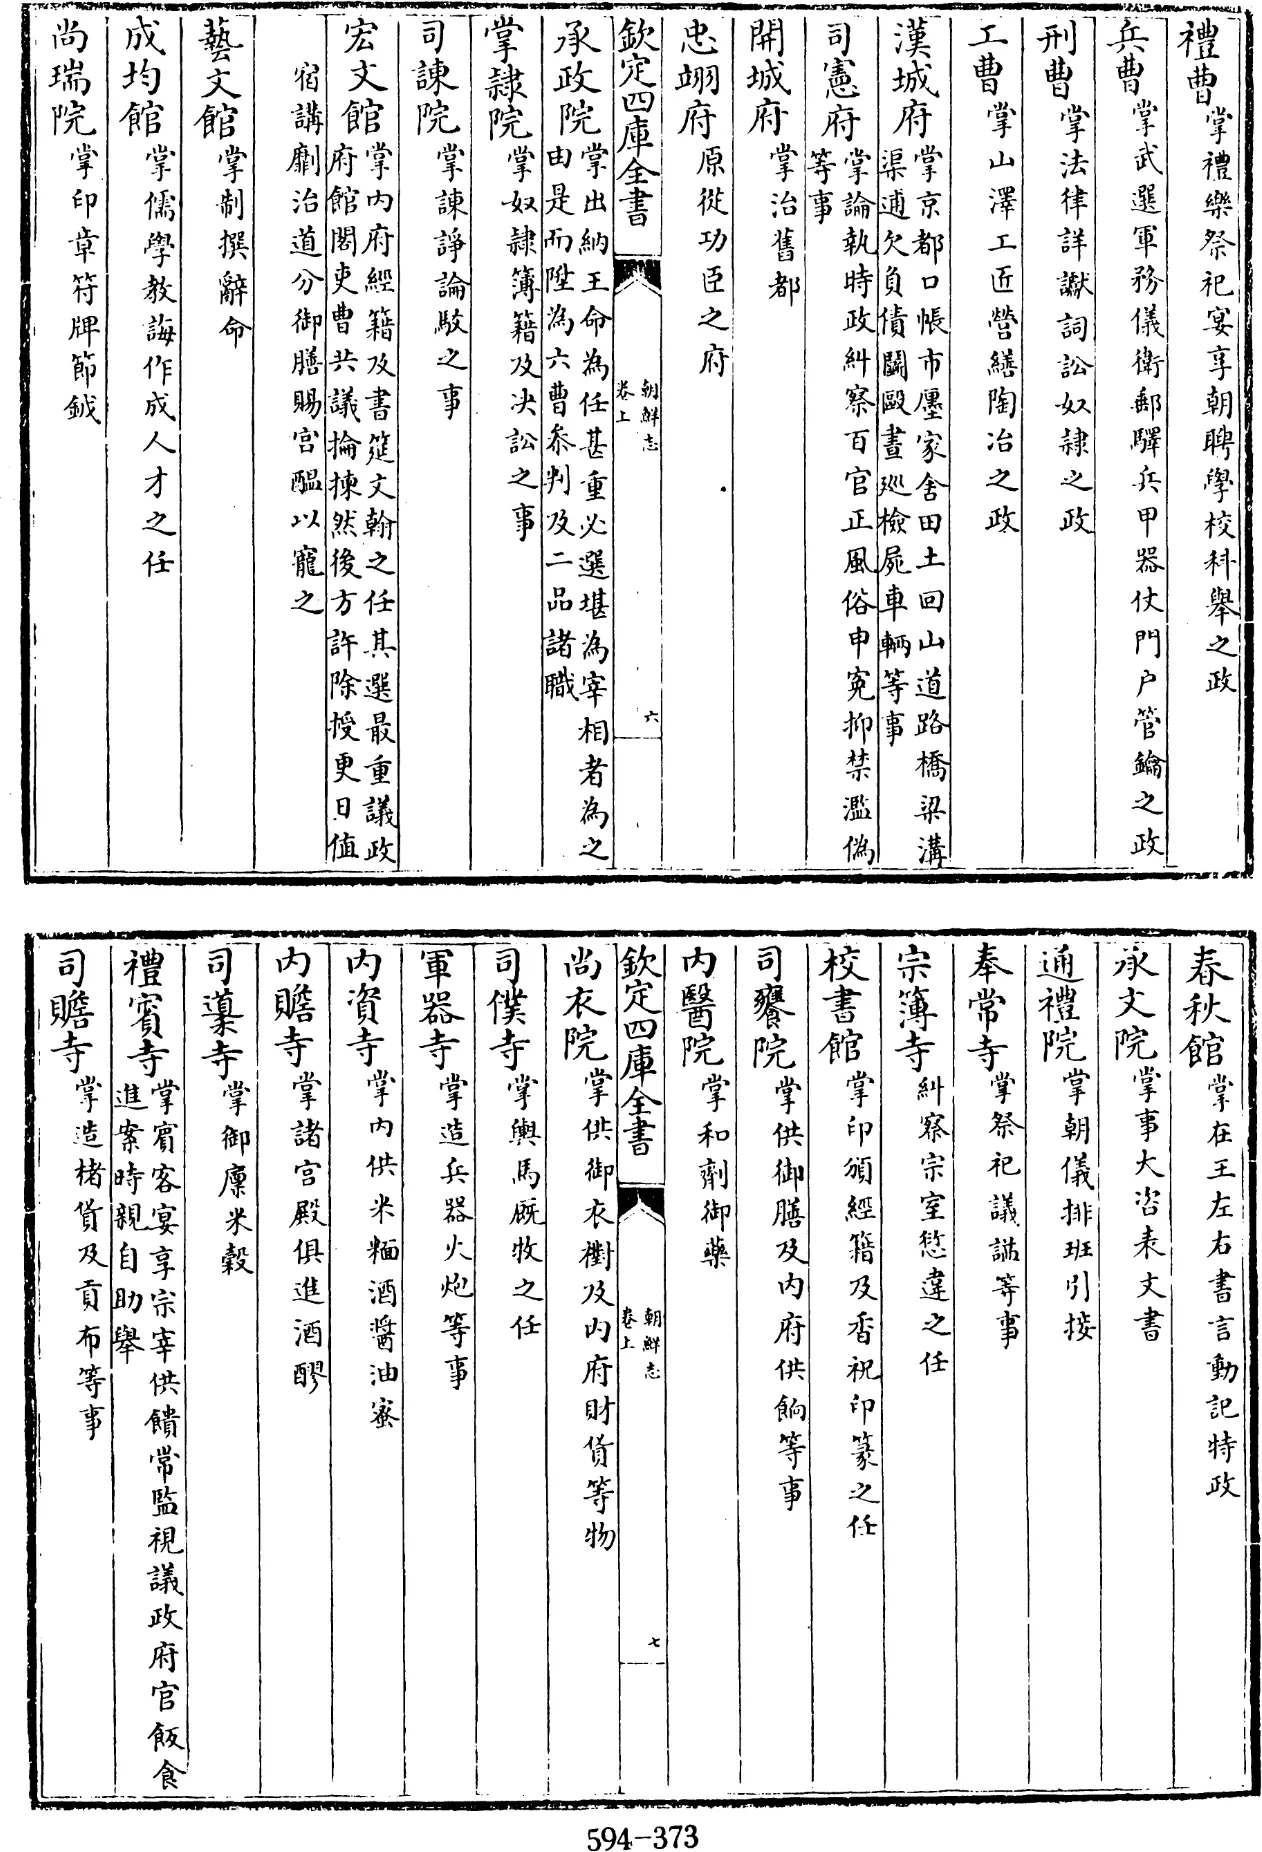 禮曹掌禮樂祭祀宴享朝聘學校科舉之政
兵曹掌武選軍務儀衛郵驛兵甲器仗門户管鑰之政
刑曹掌法律詳讞詞訟奴隷之政
工曹掌山澤工匠營繕陶冶之政
漢城府掌京都口帳市廛家舍田土回山道路橋梁溝
渠逋欠負債鬭毆晝廵檢屍車輛等事
司憲府掌論執時政糾察百官正風俗申寃抑禁濫偽
等事
開城府掌治舊都
忠翊府原從功臣之府
欽定四庫全書
朝鮮志
卷上
六
承政院掌出納王命為任甚重必選堪為宰相者為之
由是而陞為六曹叅判及二品諸職
掌隷院掌奴隷簿籍及决訟之事
司諫院掌諫諍論駁之事
宏文館掌内府經籍及書筵文翰之任其選最重議政
府館閣吏曹共議掄揀然後方許除授更日值
宿講劘治道分御膳賜宫醖以寵之
藝文館掌制撰辭命
成均館掌儒學教誨作成人才之任
尚瑞院掌印章符牌節鉞
春秋館掌在王左右書言動記特政
承文院掌事大咨表文書
通禮院掌朝儀排班引接
奉常寺掌祭祀議諡等事
宗簿寺糾察宗室愆違之任
校書館掌印頒經籍及香祝印篆之任
司饔院掌供御膳及内府供餉等事
内醫院掌和劑御藥
欽定四庫全書
朝鮮志
卷上
七
尚衣院掌供御衣襨及内府財貨等物
司僕寺掌輿馬厩牧之任
軍器寺掌造兵器火炮等事
内資寺掌内供米麵酒醬油蜜
内贍寺掌諸宫殿俱進酒醪
司䆃寺掌御廩米穀
禮賓寺掌賓客宴享宗宰供饋常監視議政府官飯食
進案時親自助舉
司贍寺掌造楮貨及貢布等事
594-373